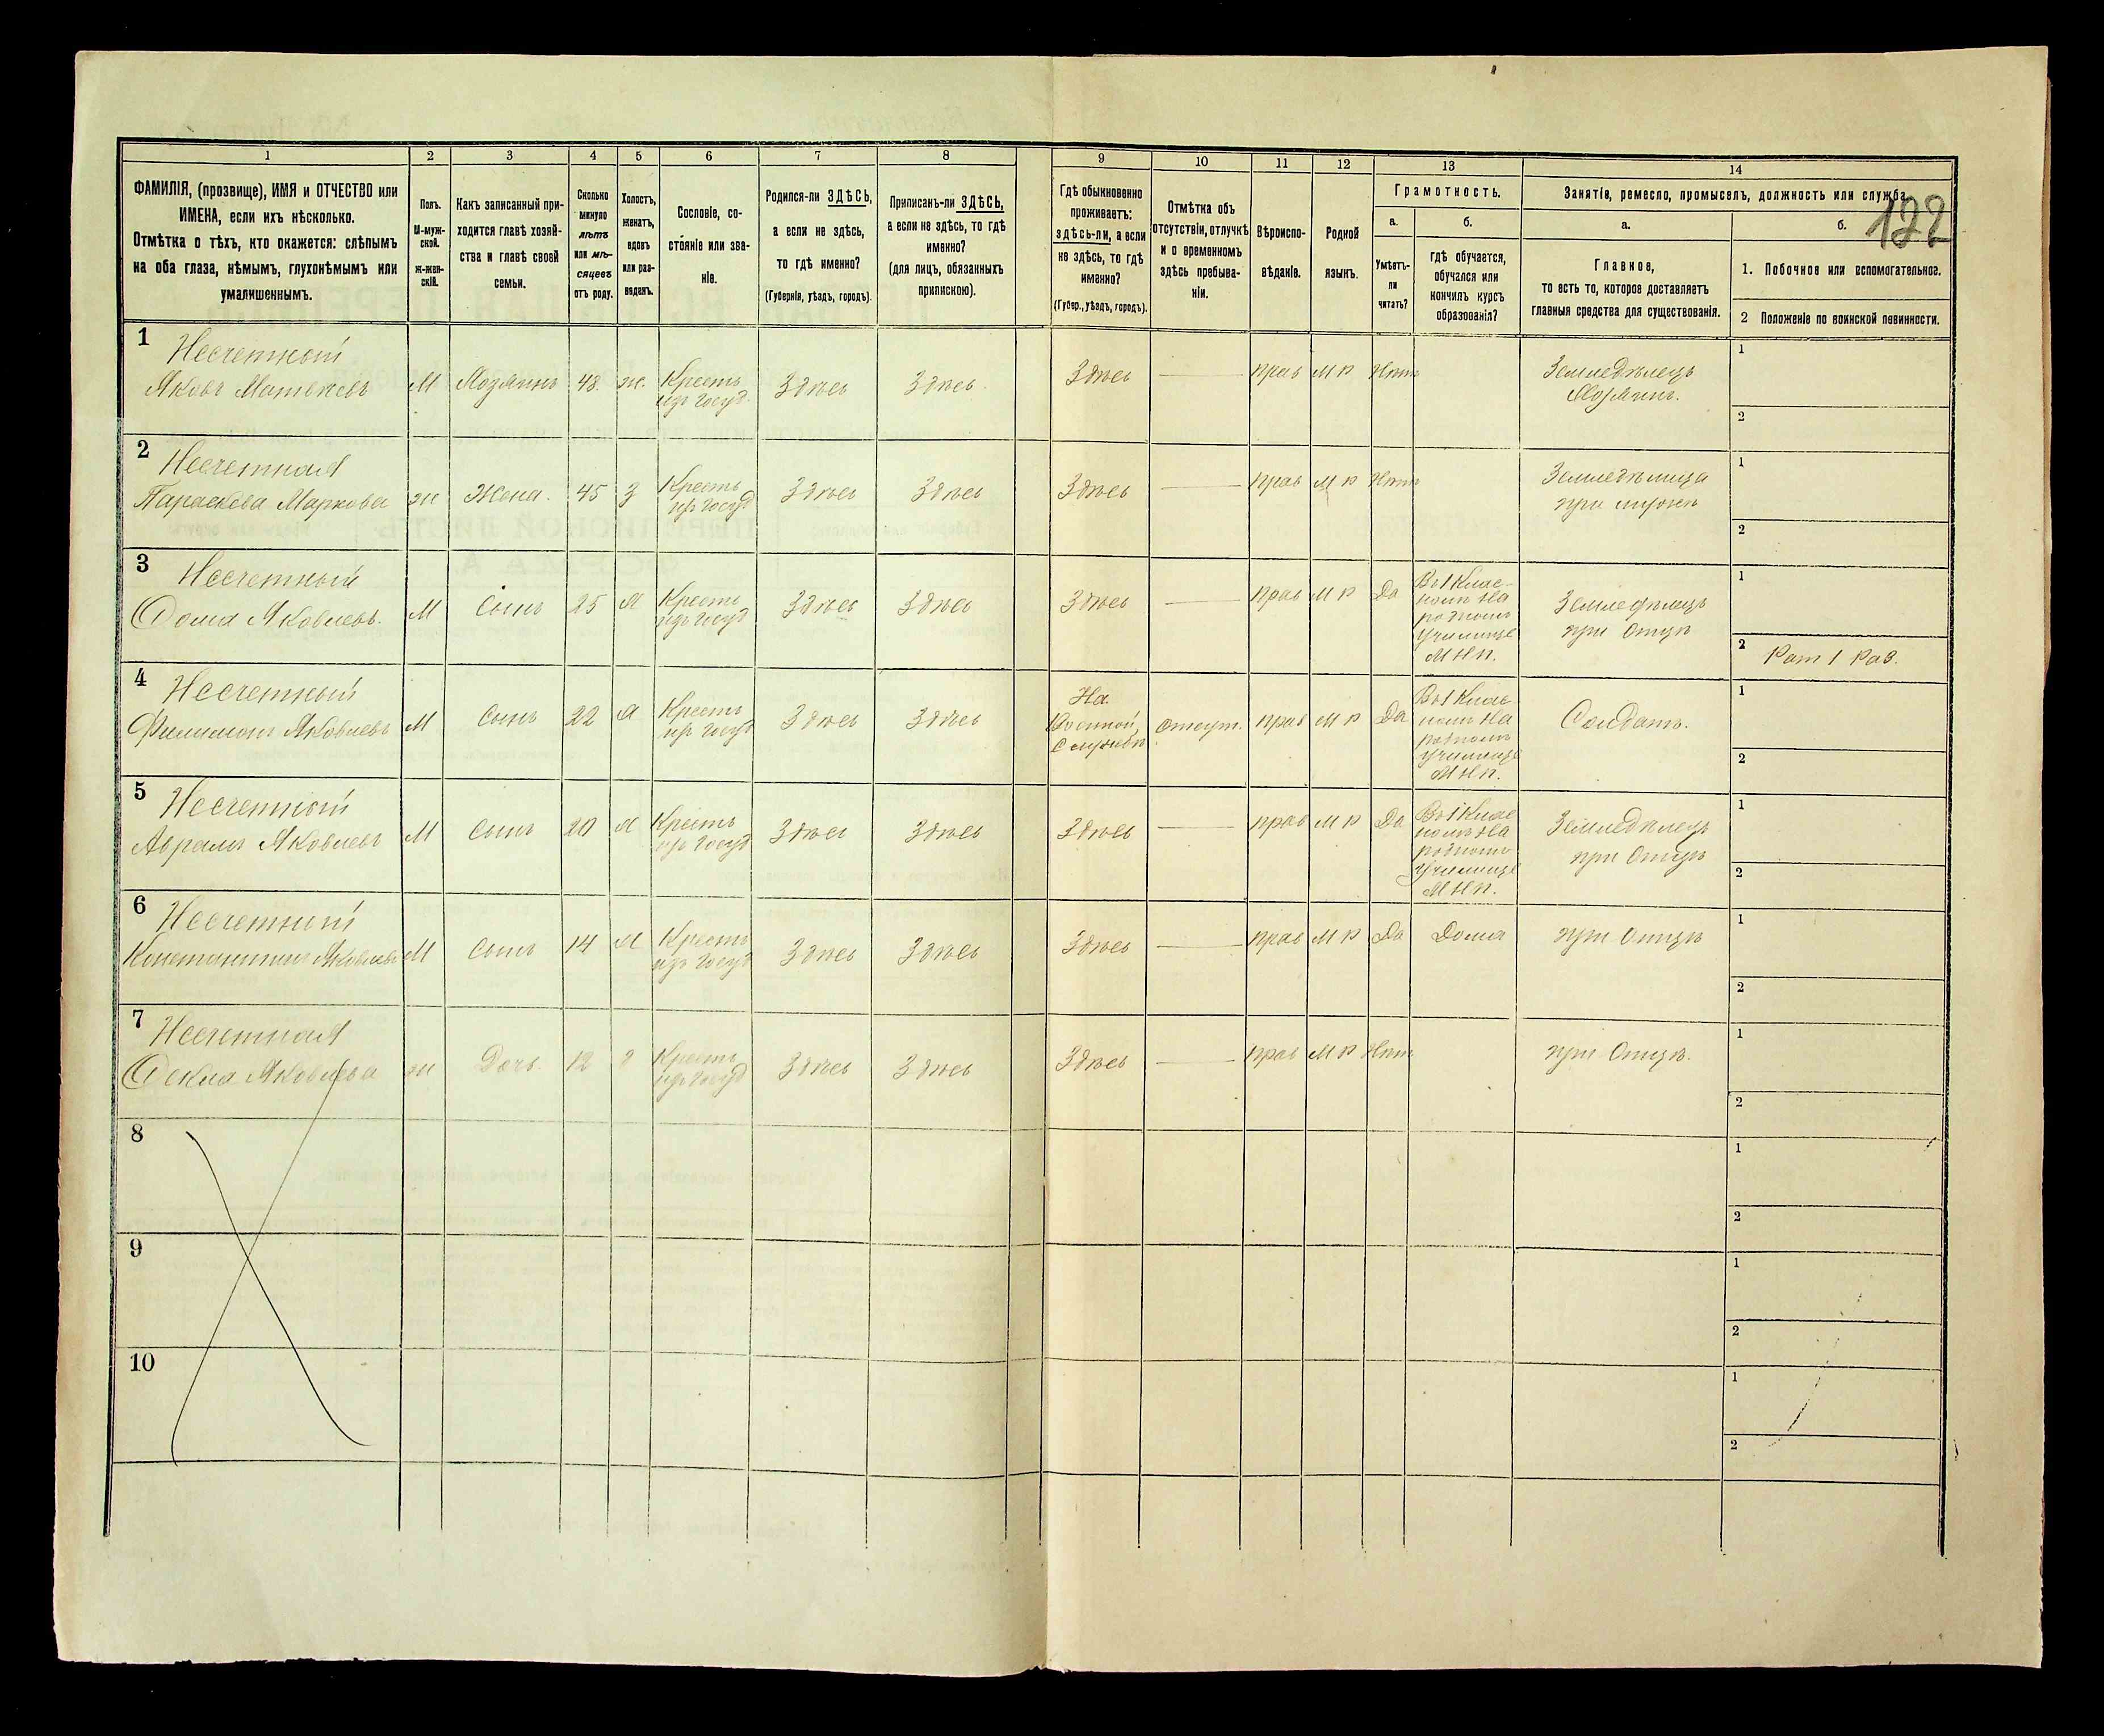 1 2 3 4 5 6 7 8 9 10 11 12 13 14
122
ФАМИЛІЯ, (прозвище), ИМЯ и ОТЧЕСТВО или
ИМЕНА, если ихъ нѣсколько.
Отмѣтка о тѣхъ, кто окажется: слѣпымъ
на оба глаза, нѣмымъ, глухонѣмымъ или
умалишеннымъ.
Полъ.
М-муж-
ской.
ж-жен-
скій.
Какъ записанный при-
ходится главѣ хозяй-
ства и главѣ своей
семьи.
Сколько
минуло
лѣтъ
или мѣ-
сяцевъ
отъ роду.
Холостъ,
женатъ,
вдовъ
или раз-
веденъ.
Сословіе, со-
стояніе или зва-
ніе.
Родился-ли ЗДѢСЬ,
а если не здѣсь,
то гдѣ именно?
(Губернія, уѣздъ, городъ).
Приписанъ-ли ЗДѢСЬ,
а если не здѣсь, то гдѣ
именно?
(для лицъ, обязанныхъ
припискою).
Гдѣ обыкновенно
проживаетъ:
здѣсь-ли, а если
не здѣсь, то гдѣ
именно?
(Губер., уѣздъ, городъ).
Отмѣтка объ
отсутствіи, отлучкѣ
и о временномъ
здѣсь пребыва-
ніи.
Вѣроиспо-
вѣданіе.
Родной
языкъ.
Грамотность.
а.
Умѣетъ-
ли
читать?
б.
гдѣ обучается,
обучался или
кончилъ курсъ
образованія?
Занятіе, ремесло, промыселъ, должность или служба.
а.
Главное,
то есть то, которое доставляетъ
главныя средства для существованія.
б.
1. Побочное или вспомогательное.
2 Положеніе по воинской повинности.
1 Несчетный
Яковъ Матвѣевъ М Хозяинъ 48. ж. Кресть
изъ госуд. Здѣсь Здѣсь Здѣсь — прав М р Нѣтъ Земледѣлецъ
Хозяинъ.
1
2
2 Несчетная
Параскева Маркова ж Жена. 45 З Кресть
изъ госуд Здѣсь Здѣсь Здѣсь — прав М р Нѣтъ Земледѣлица
при мужѣ
1
2
3 Несчетный
Ѳома Яковлевъ. М Сынъ 25 Х Кресть
изъ госуд Здѣсь Здѣсь Здѣсь — прав М р Да Въ 1 Клас-
номъ На
родномъ
училище
М Н П.
Земледѣлецъ
при Отцѣ
1
2 Рат 1 Раз.
4 Несчетный
Филимонъ Яковлевъ М Сынъ 22 Х Кресть
изъ госуд Здѣсь Здѣсь На
Военной
Службѣ
отсут. прав М р Да Въ 1 Клас
номъ На
родномъ
училище
М Н П.
Солдатъ.
1
2
5 Несчетный
Абрамъ Яковлевъ М Сынъ 20 Х Кресть
изъ госуд Здѣсь Здѣсь Здѣсь — прав М р Да Въ 1 Клас
номъ На
родномъ
училище
М Н П.
Земледѣлецъ
при Отцѣ
1
2
6 Несчетный
Константинъ Яковлевъ М Сынъ 14 Х Кресть
изъ госуд Здѣсь Здѣсь Здѣсь — прав М р Да Дома при Отцѣ
1
2
7 Несчетная
Ѳекла Яковлева ж Дочь. 12 Кресть
изъ госуд Здѣсь Здѣсь Здѣсь — прав М р Нѣтъ при Отцѣ.
1
2
8
1
2
9
1
2
10
1
2